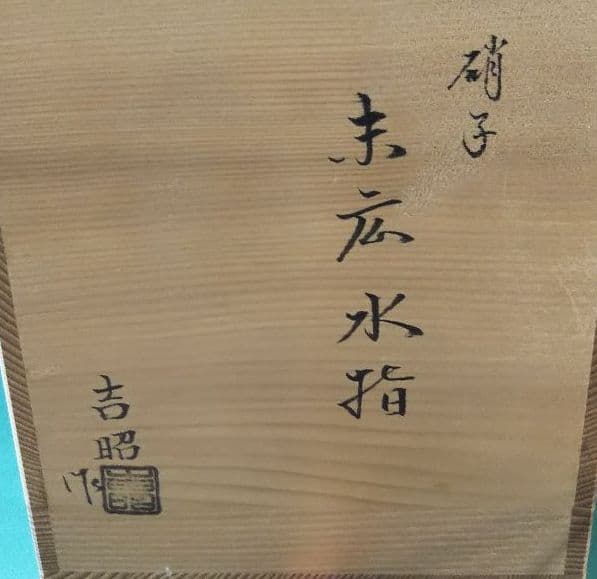 硝子
末広水指
吉昭作